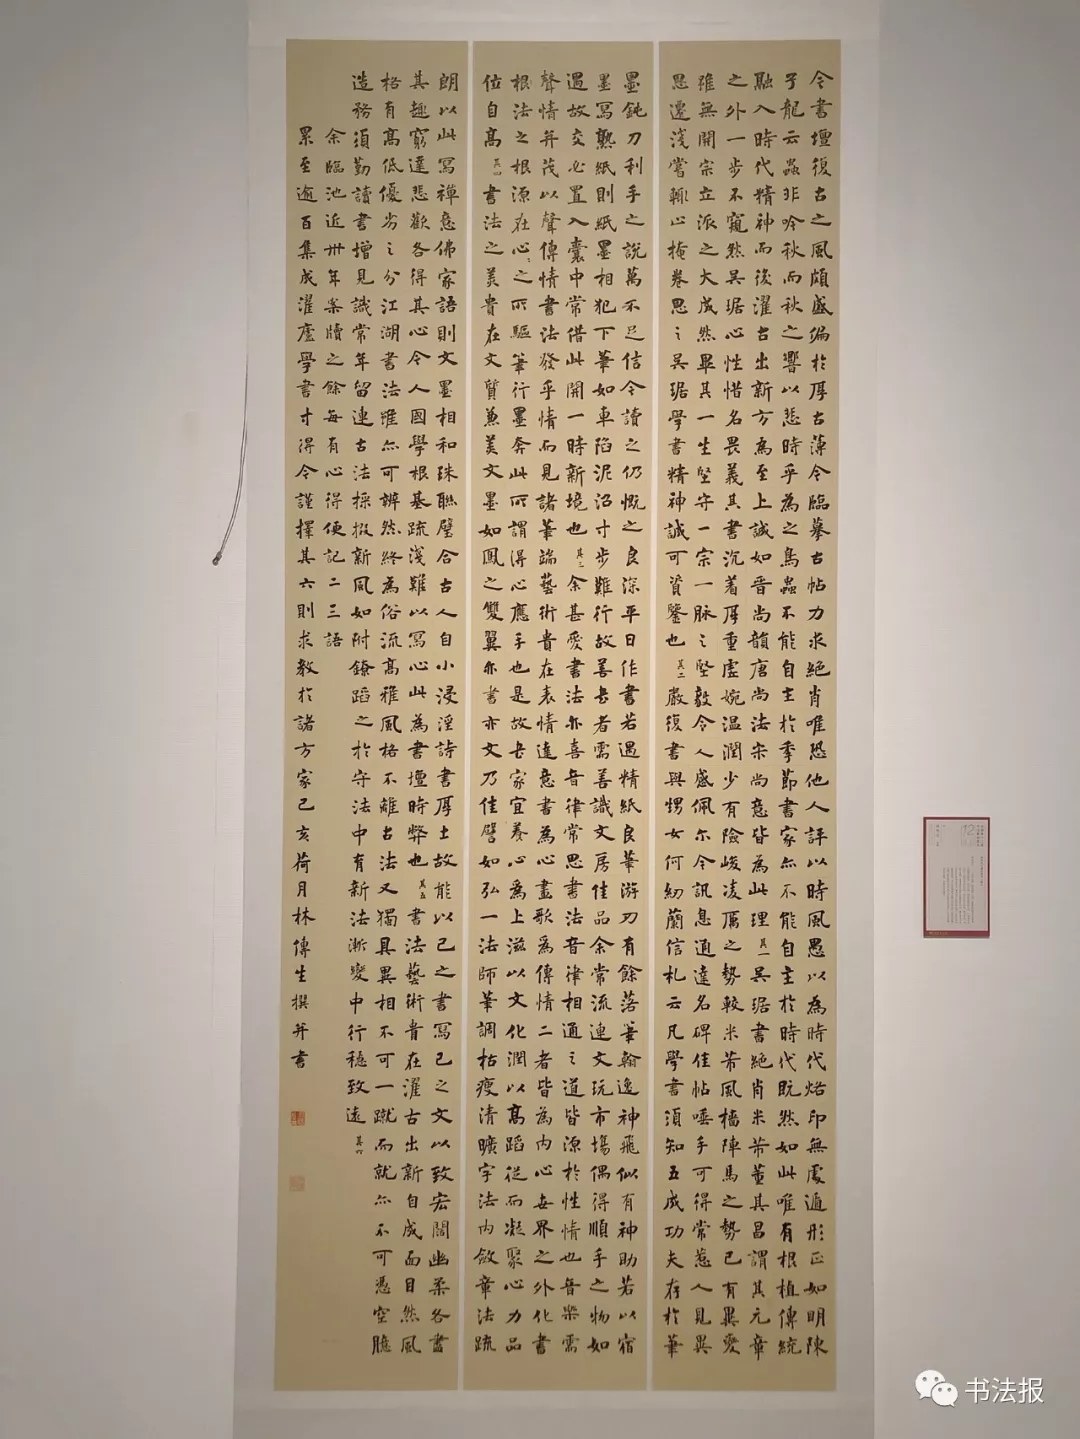 今書壇復古之風頗盛偏於厚古薄今臨摹古帖力求絕肖唯恐他人評以時風愚以為時代烙印無處遁形正如明陳
子龍云蟲非吟秋而秋之響以悲時乎為之鳥蟲不能自主於季節書家亦不能自主於時代既然如此唯有根植傳統
融入時代精神而後濯古出新方為至上誠如晋尚韻唐尚法宋尚意皆為此理其一吴琚書絕肖米芾董其昌謂其元章
之外一步不窺然吴琚心性惜名畏義其書沉着厚重虛婉温潤少有險峻凌厲之勢較米芾風檣陣馬之勢已有異變
雖無開宗立派之大成然畢其一生堅守一宗一脉之堅毅令人感佩尔今訊息通達名碑佳帖唾手可得常惹人見異
思遷淺嘗輒止掩卷思之吴琚學書精神誠可資鑒也其二嚴復書與甥女何紉蘭信札云凡學書須知五成功夫存於筆
墨鈍刀利手之說萬不足信今讀之仍慨之良深平日作書若遇精紙良筆游刃有餘落筆翰逸神飛似有神助若以宿
墨寫熟紙則紙墨相犯下筆如車陷泥沼寸步難行故善書者需善識文房佳品余常流連文玩市場偶得順手之物如
遇故交必置入囊中常借此開一時新境也其三余甚愛書法亦喜音律常思書法音律相通之道皆源於性情也音樂需
聲情并茂以聲傳情書法發乎情而見諸筆端藝術貴在表情達意書為心畫歌為傳情二者皆為内心世界之外化書
根法之根源在心心之所驅筆行墨奔此所謂得心應手也是故書家宜養心為上滋以文化潤以高蹈從而凝聚心力品
位自高其四書法之美貴在文質兼美文墨如鳳之雙翼亦書亦文乃佳譬如弘一法師筆調枯瘦清曠字法内斂章法疏
朗以此寫禪意佛家語則文墨相和珠聯璧合古人自小浸淫詩書厚土故能以己之書寫己之文以致宏闊幽柔各盡
其趣窮達悲歡各得其心今人國學根基疏淺難以寫心此為書壇時弊也其五書法藝術貴在濯古出新自成面目然風
格有高低優劣之分江湖書法雖亦可辨然終為俗流高雅風格不離古法又獨具異相不可一蹴而就亦不可憑空臆
造務須勤讀書增見識常年留連古法採掇新風如附鐐蹈之於守法中有新法漸變中行穩致遠其六
余臨池近卅年案牘之餘每有心得便記二三語
累至逾百集成濯廬學書寸得今謹擇其六則求教於諸方家己亥荷月林傳生撰并書
书法报